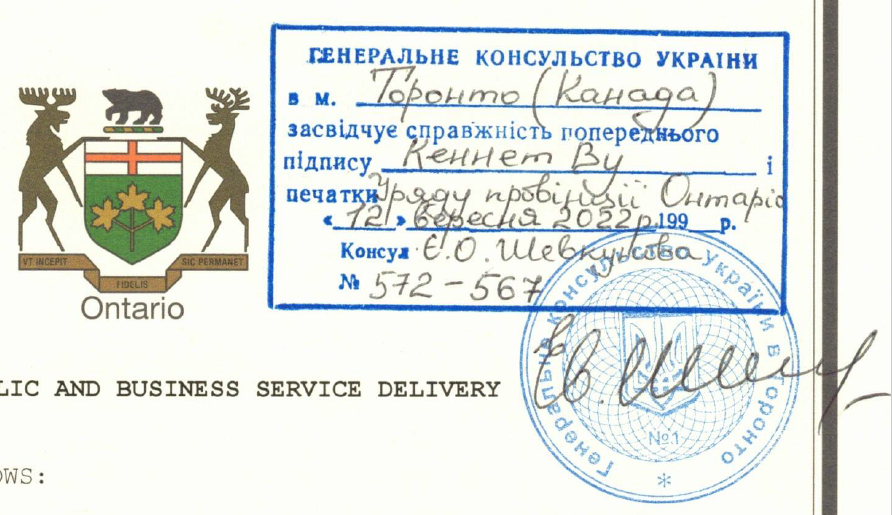 ГЕНЕРАЛЬНЕ КОНСУЛЬСТВО УКРАЇНИ
в м. Торонто (Канада)
засвідчує справжність попереднього
підпису Кеннет Ву і
печатки Уряду провінції Онтаріо
« 12 » вересня 2022р. 199 р.
Консул Є.О. Шевкунова
№ 572-567
VT INCEPIT
FIDELIS
SIC PERMANET
Ontario
LIC AND BUSINESS SERVICE DELIVERY
OWS:
Генеральне консульство України в Торонто
№1